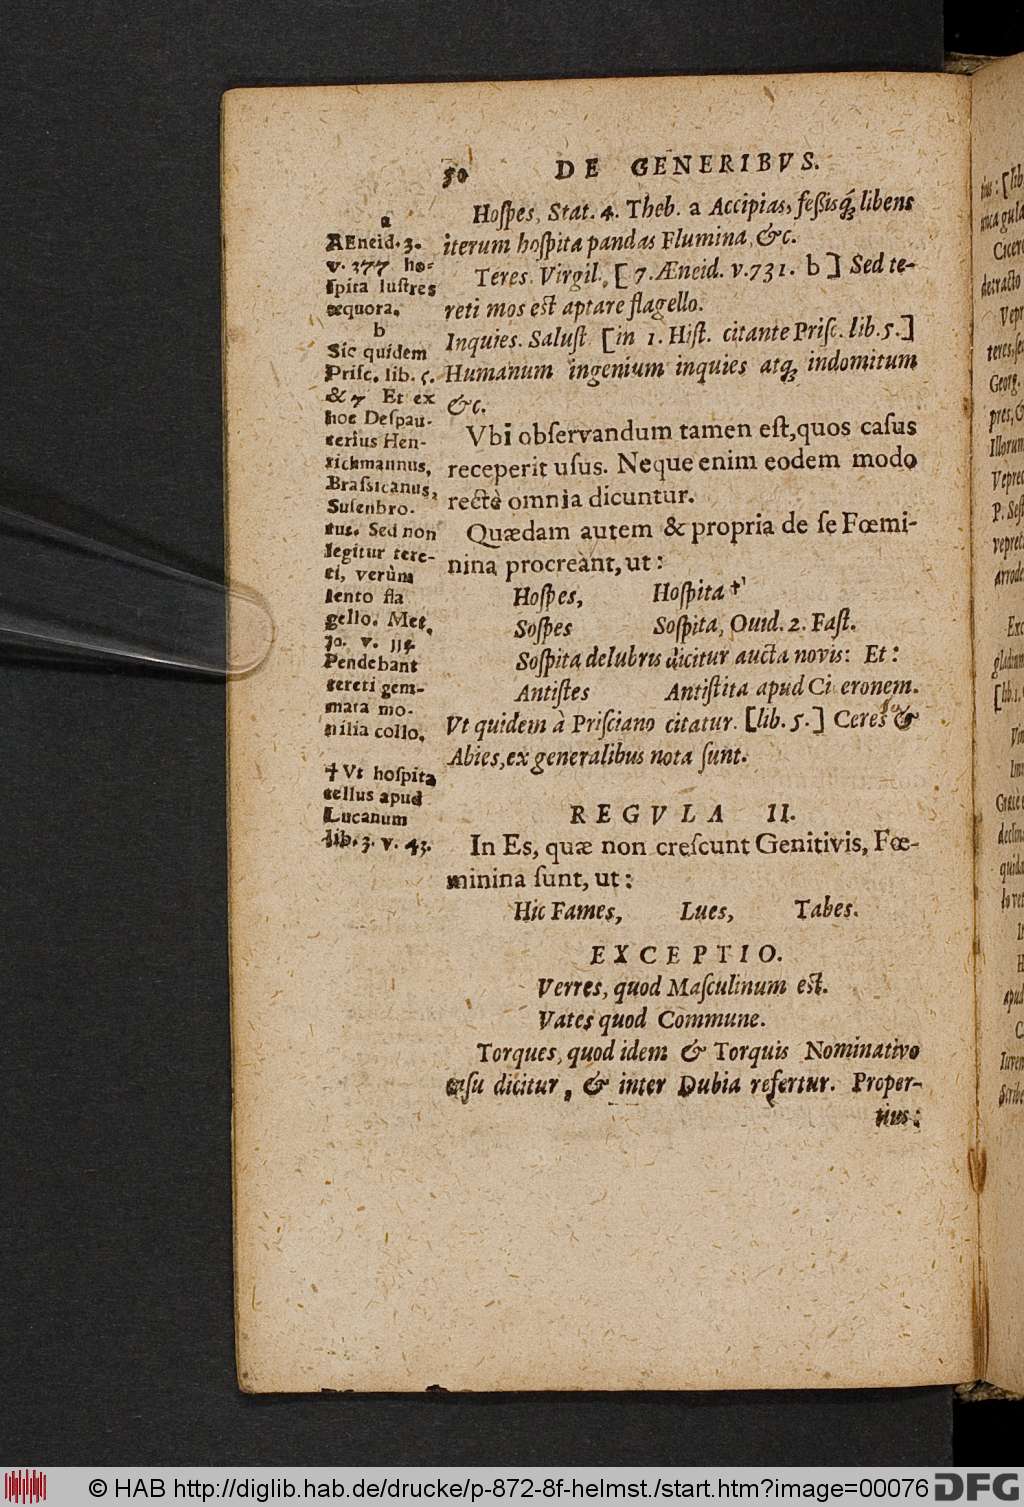 50 DE GENERIBVS.
Hoſpes, Stat. 4. Theb. a Accipias, feſsisq́; libens
iterum hoſpita pandas Flumina, &c.
Teres. Virgil. [ 7. Æneid. v.731. b ] Sed te-
reti mos eſt aptare flagello.
Inquies. Saluſt [in 1. Hiſt. citante Priſc. lib.5.]
Humanum ingenium inquies atq; indomitum
&c.
Vbi obſervandum tamen eſt, quos caſus
receperit uſus. Neque enim eodem modo
rectè omnia dicuntur.
Quædam autem & propria de ſe Fœmi-
nina procreant, ut:
Hoſpes, Hoſpita †
Soſpes Soſpita, Ouid. 2. Faſt.
Soſpita delubris dicitur aucta novis: Et:
Antiſtes Antiſtita apud Ciceronem.
Vt quidem à Priſciano citatur. [lib. 5.] Ceres &
Abies, ex generalibus nota ſunt.
REGVLA II.
In Es, quæ non creſcunt Genitivis, Fœ-
minina ſunt, ut:
Hic Fames, Lues, Tabes.
EXCEPTIO.
Verres, quod Maſculinum eſt.
Vates quod Commune.
Torques, quod idem & Torquis Nominativo
caſu dicitur, & inter Dubia refertur. Proper-
tius:
a
AEneid. 3.
v. 377 ho-
ſpita luſtres
æquora.
b
Sic quidem
Priſc. lib. 5.
& 7 Et ex
hoc Deſpau-
terius Hen-
richmannus,
Braſsicanus,
Suſenbro-
tus. Sed non
legitur tere-
ti, verùm
lento fla
gello. Met.
10. v. 114
Pendebant
tereti gem-
mata mo-
nilia collo.
† Vt hoſpita
tellus apud
Lucanum
lib. 3. v. 43.
© HAB http://diglib.hab.de/drucke/p-872-8f-helmst./start.htm?image=00076
DFG